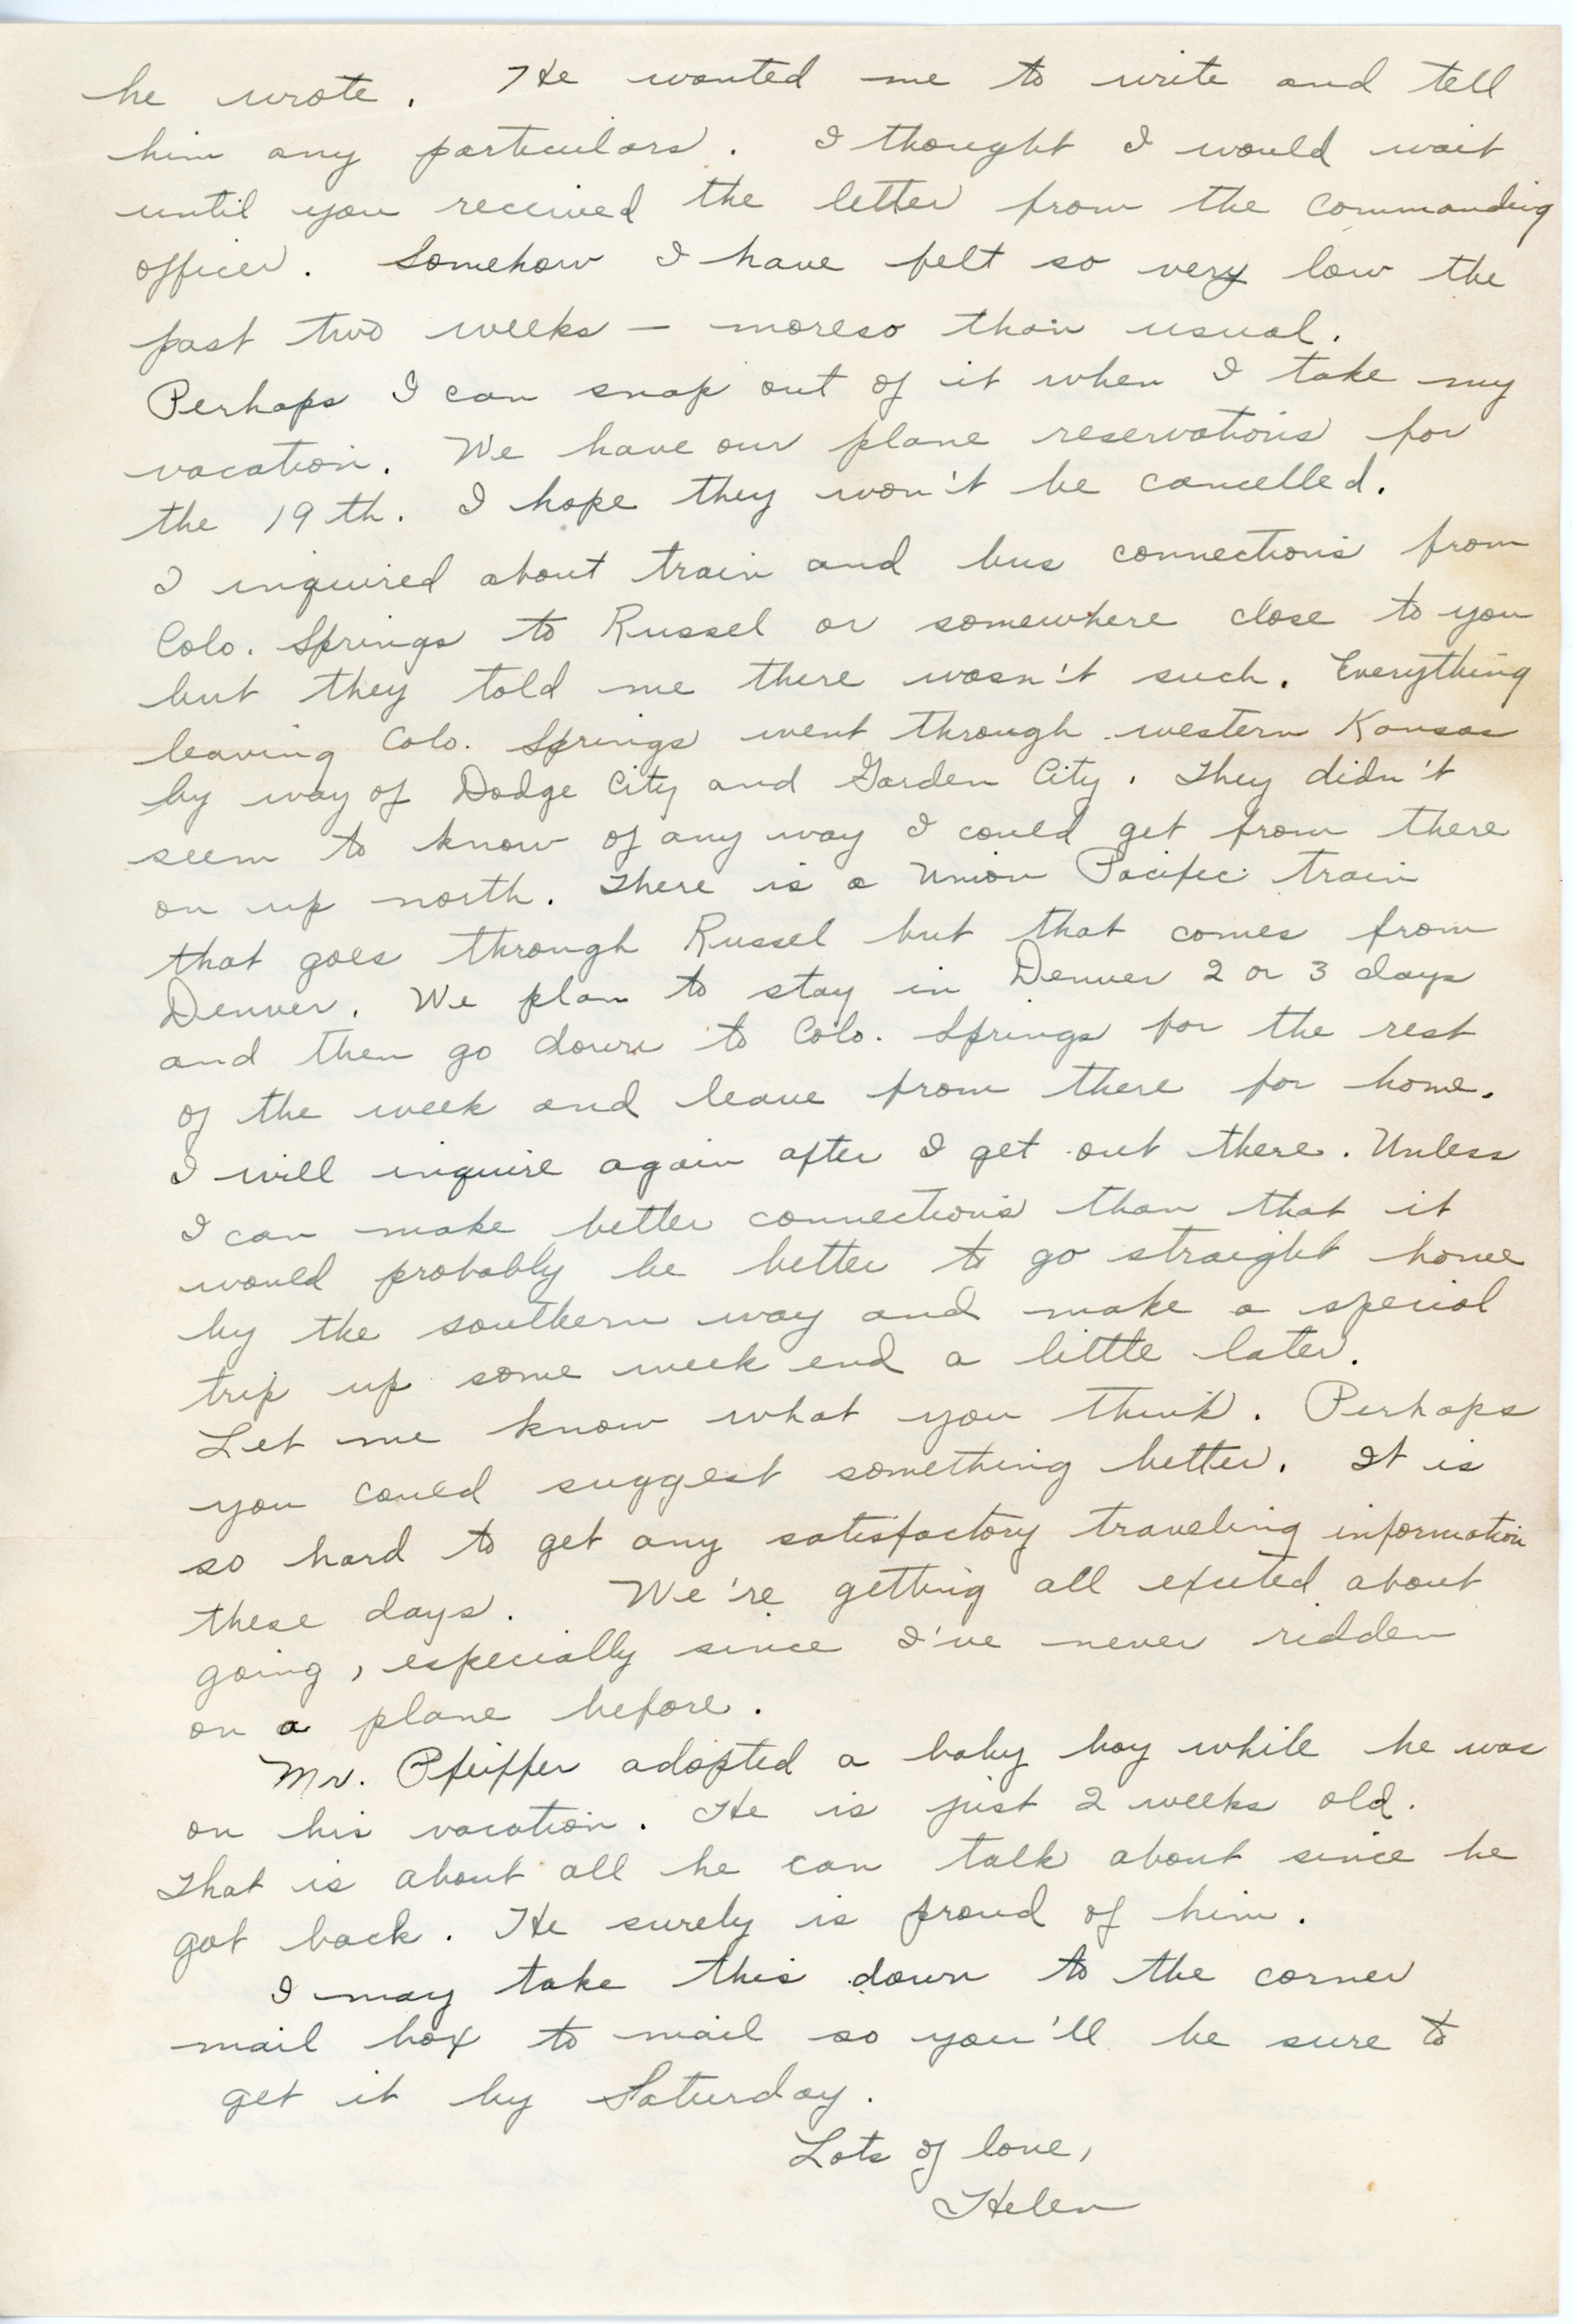 he wrote. He wanted me to write and tell
him any particulars. I thought I would wait
until you received the letter from the commanding
officer. Somehow I have felt so very low the
past two weeks — moreso than usual.
Perhaps I can snap out of it when I take my
vacation. We have our plane reservations for
the 19th. I hope they won't be cancelled.
I inquired about train and bus connections from
Colo. Springs to Russel or somewhere close to you
but they told me there wasn't such. Everything
leaving Colo. Springs went through western Kansas
by way of Dodge City and Garden City. They didn't
seem to know of any way I could get from there
on up north. There is a Union Pacific train
that goes through Russel but that comes from
Denver. We plan to stay in Denver 2 or 3 days
and then go down to Colo. Springs for the rest
of the week and leave from there for home.
I will inquire again after I get out there. Unless
I can make better connections than that it
would probably be better to go straight home
by the southern way and make a special
trip up some week end a little later.
Let me know what you think. Perhaps
you could suggest something better. It is
so hard to get any satisfactory traveling information
these days. We're getting all excited about
going, especially since I've never ridden
on a plane before.
Mr. Pfeiffer adopted a baby boy while he was
on his vacation. He is just 2 weeks old.
That is about all he can talk about since he
got back. He surely is proud of him.
I may take this down to the corner
mail box to mail so you'll be sure to
get it by Saturday.
Lots of love,
Helen